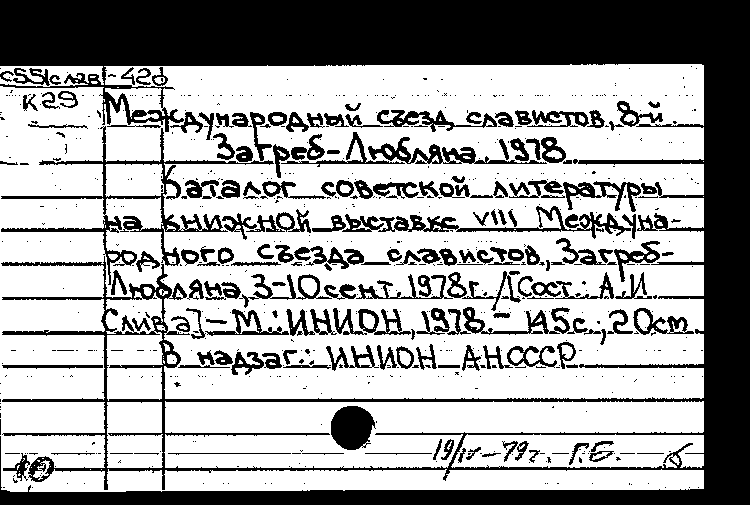 с551слав-420
К29
Международный съезд славистов, 8-й.
Загреб-Любляна. 1978
Каталог советской литературы
на книжной выставке VIII Междуна-
родного съезда славистов, Загреб-
Любляна, 3-10 сент. 1978г. /[Сост.: А.И
Слива]-М.: ИНИОН, 1978.- 145с.; 20см.
В надзаг.: ИНИОН АН СССР
19/IV-79г. Г.Б.